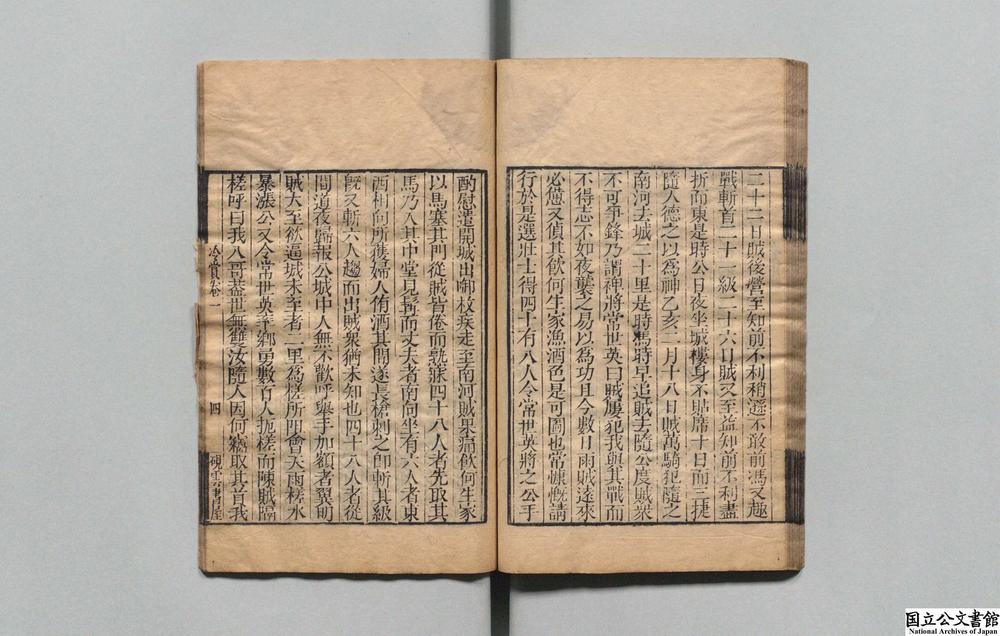 二十二日賊後營至知前不利稍遜不敢前馮又趣
戰斬首二十一級二十六日賊又至益知前不利盡
折而東是時公日夜坐城樓身不貼席十日而三捷
隨人德之以為神乙亥二月十八日賊萬騎犯隨之
南河去城二十里是時馮時早追賊去隨公度賊衆
不可爭鋒乃謂裨將常世英曰賊屢犯我與其戰而
不得志不如夜襲之易以為功且今數日雨賊遠來
必憊又偵其飲何生家漁酒色是可圖也常慷慨請
行於是選壯士得四十有八人令常世英將之公手
酌慰遣開城出啣枚疾走至南河賊果痛飲何生家
以馬塞其門從賊皆倦而熟寐四十八人者先取其
馬乃入其中堂見髯而丈夫者南向坐有六人者東
西相向所獲婦人侑酒其間遂長槍刺之即斬其級
旣又斬六人趨而出賊衆猶未知也四十八人者從
間道夜歸報公城中人無不歡呼舉手加額者翼明
賊大至欲逼城未至者二里為槎所阻會天雨槎水
暴漲公又令常世英率鄉勇數百人扼槎而陳賊隔
槎呼曰我八哥益世無雙汝隨人因何竊取其首我
冷賞 卷一
四
硯雲書屋
国立公文書館
National Archives of Japan